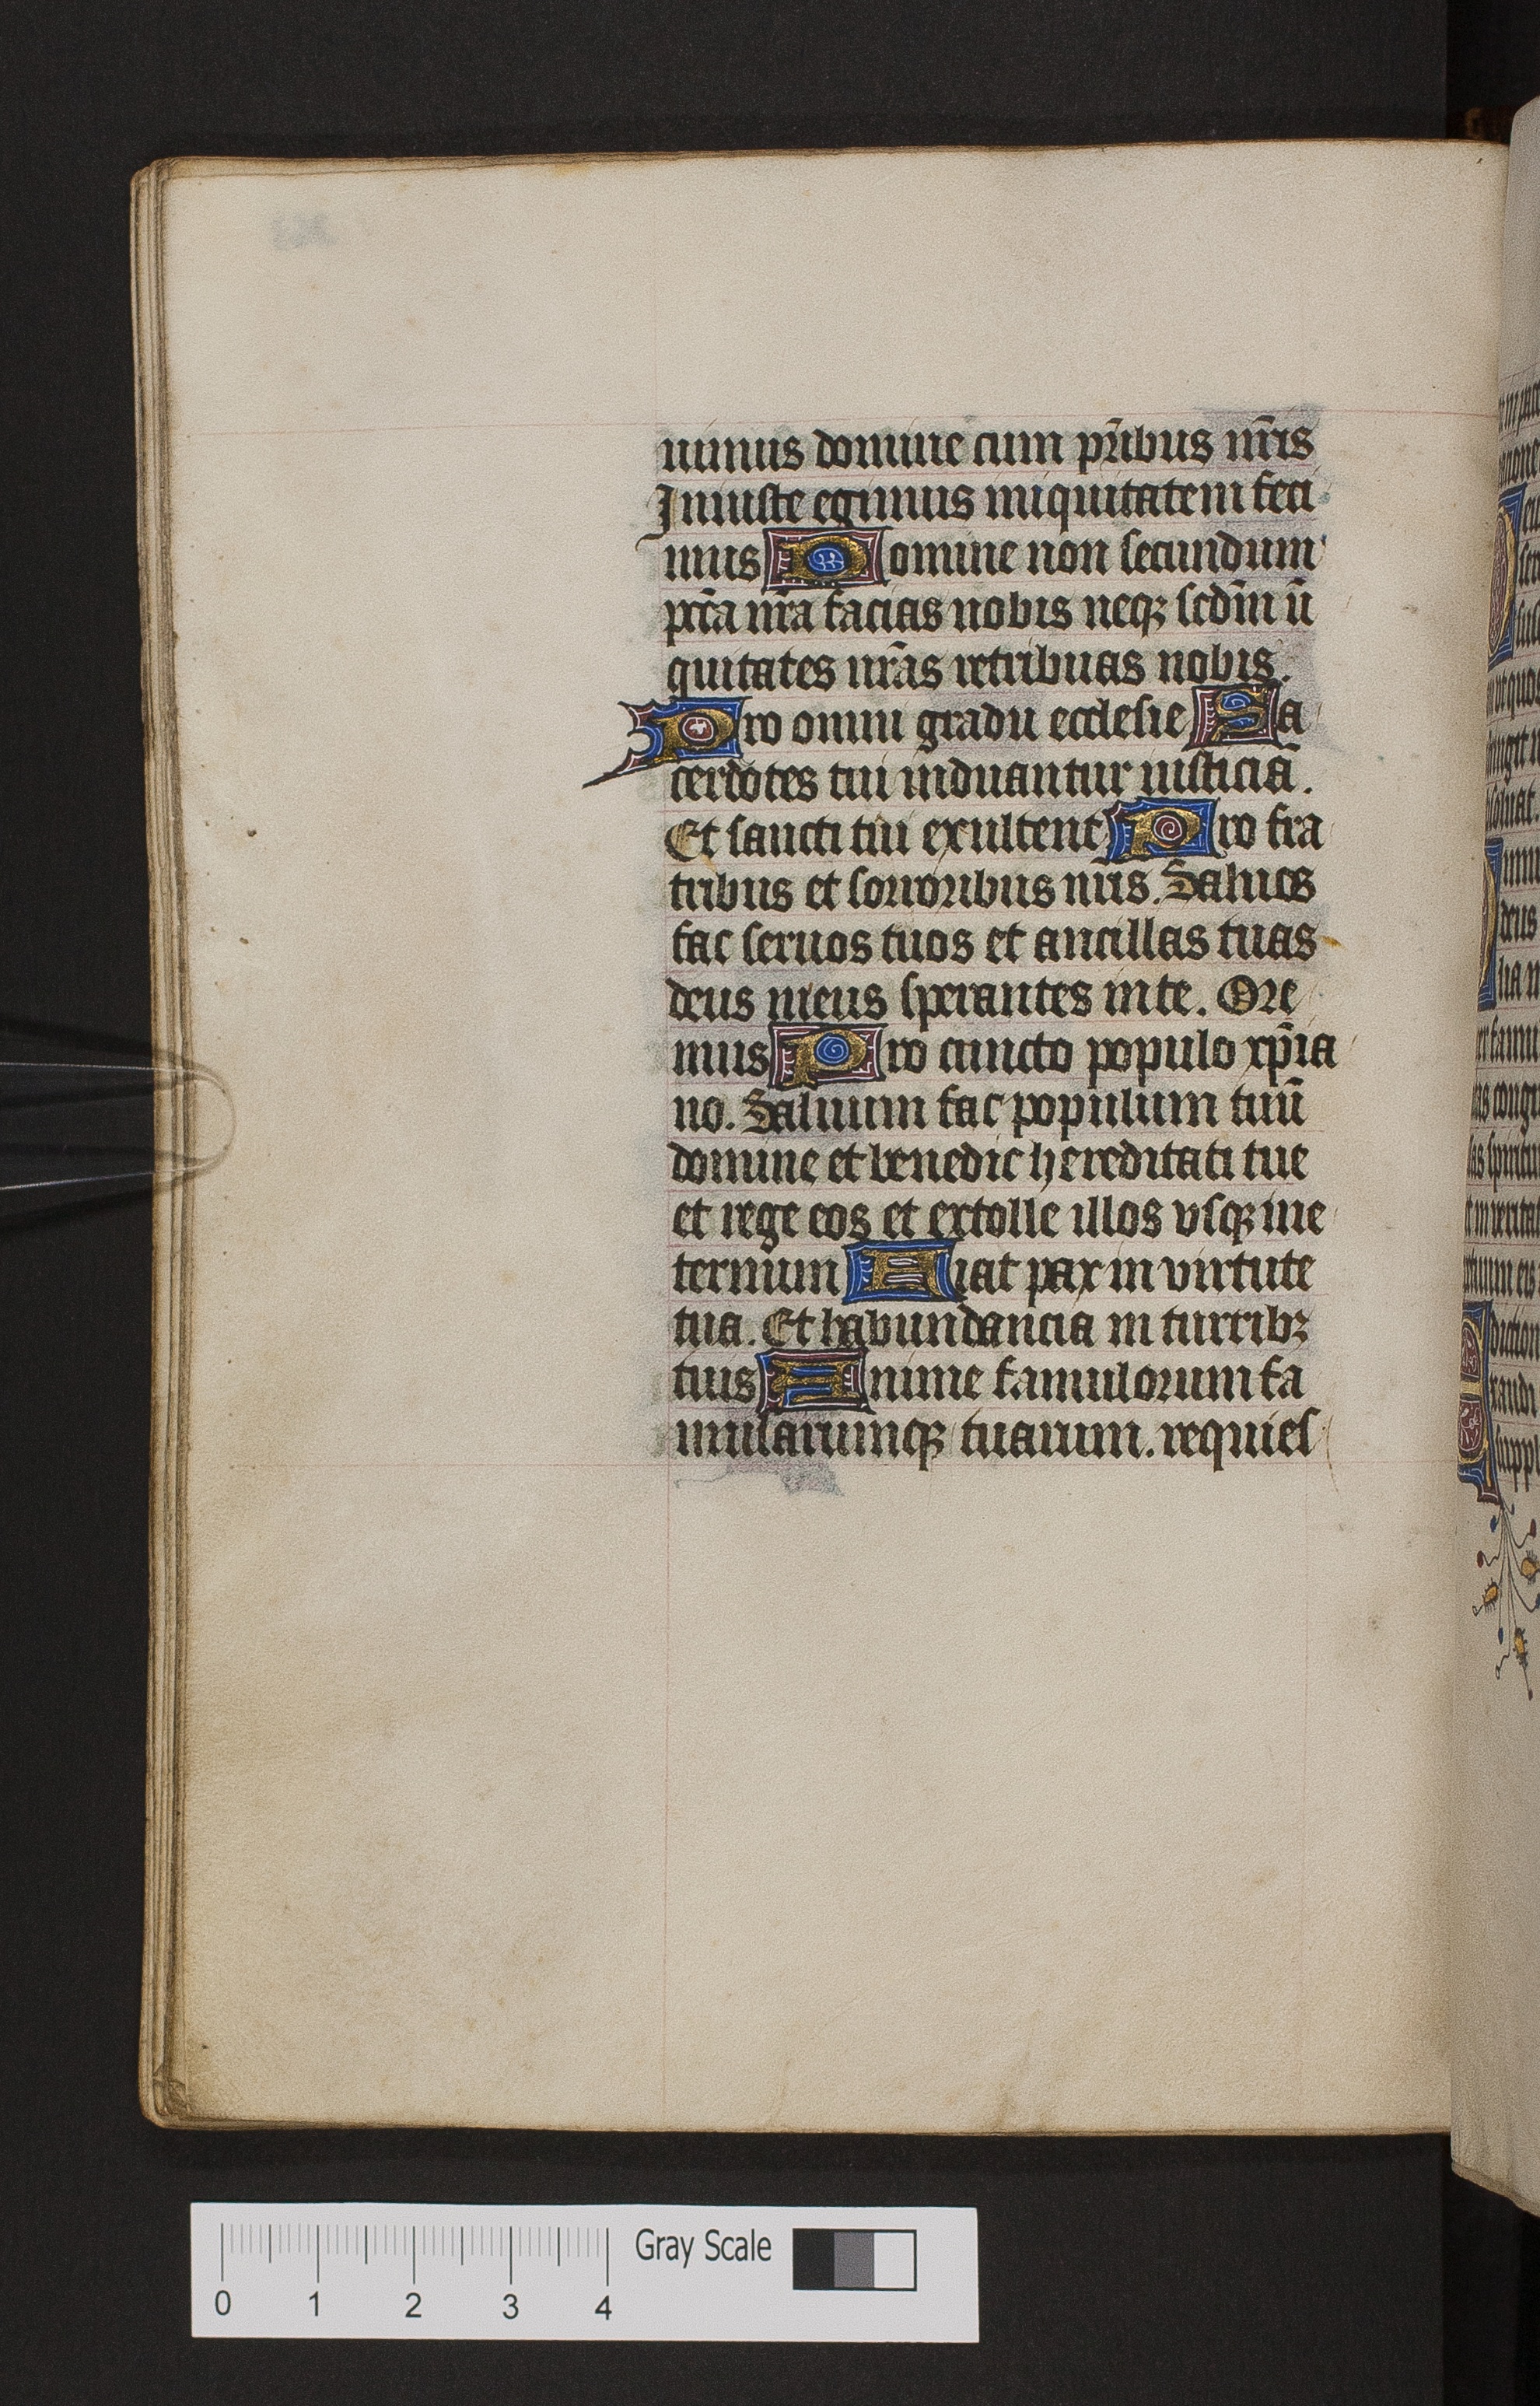 uimus domine cum pr̄ibus nr̄is
Iniuste egimus iniquitatem feci
mus Domine non secundum
pctā nr̄a facias nobis neqꝫ scdm̄ ini
quitates nr̄as retribuas nobis.
Pro omni gradu ecclesie Sa
cerdotes tui induantur iusticiā.
Et sancti tui exultent Pro fra
tribus et sororibus nr̄is. Saluos
fac seruos tuos et ancillas tuas
deus meus sperantes in te. Ore
mus Pro cuncto populo xp̄ia
no. Saluum fac populum tuū
domine et benedic hereditati tue
et rege eos et extolle illos vsqꝫ in e
ternum Fiat pax in virtute
tua. Et habundancia in turribꝫ
tuis Anime famulorum fa
mularumqꝫ tuarum. requies
Gray Scale
0 1 2 3 4